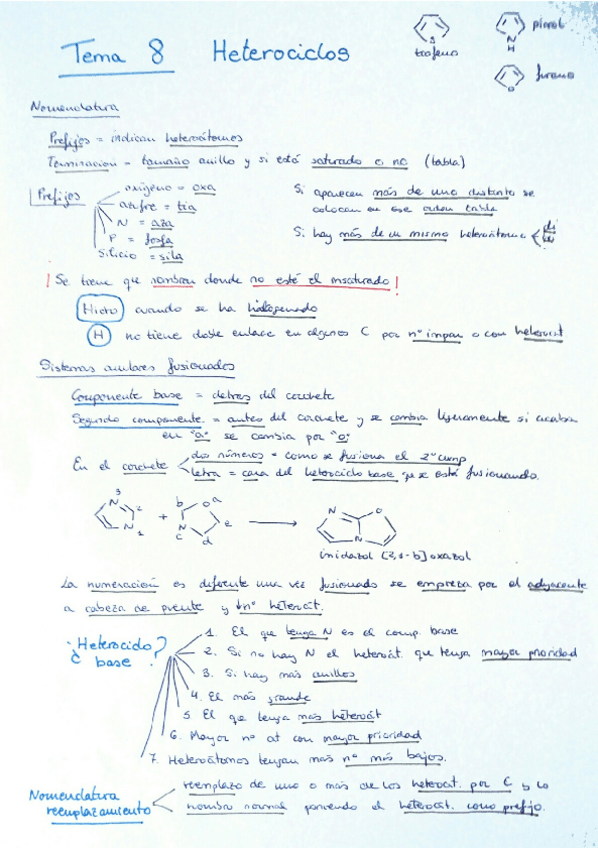 Tema 8 Heterociclos
S
tiofeno
N
H
pirrol
O
furano
Nomenclatura
Prefijos = indican heteroátomos
Terminación = tamaño anillo y si está saturado o no (tabla)
Prefijos
oxígeno = oxa
azufre = tia
N = aza
P = fosfa
Silicio = sila
Si aparecen más de uno distinto se
colocan en ese orden tabla
Si hay más de un mismo heteroátomo di
tri
¡Se tiene que nombrar donde no esté el insaturado!
Hidro cuando se ha halogenado
H no tiene doble enlace en algunos C por nº impar o con heteroát
Sistemas anulares fusionados
Componente base = detras del corchete
Segundo componente = antes del corchete y se cambia ligeramente si acaba
en "a" se cambia por "o"
En el corchete
dos números = como se fusiona el 2º comp
letra = cara del heterociclo base que se está fusionando.
3 N 2 N 1 + b O a N e c d → N O N
imidazol [2,1-b] oxazol
La numeración es diferente una vez fusionado se empieza por el adyacente
a cabeza de puente y ↓nº heteroát.
¿Heterociclo
C base?
1. El que tenga N es el comp. base
2. Si no hay N el heteroát. que tenga mayor prioridad
3. Si hay más anillos
4. El más grande
5. El que tenga más heteroát
6. Mayor nº at con mayor prioridad
7. Heteroátomos tengan mas nº más bajos.
Nomenclatura
reemplazamiento
reemplazo de uno o más de los heteroát. por C y lo
nombro normal poniendo el heteroát. como prefijo.